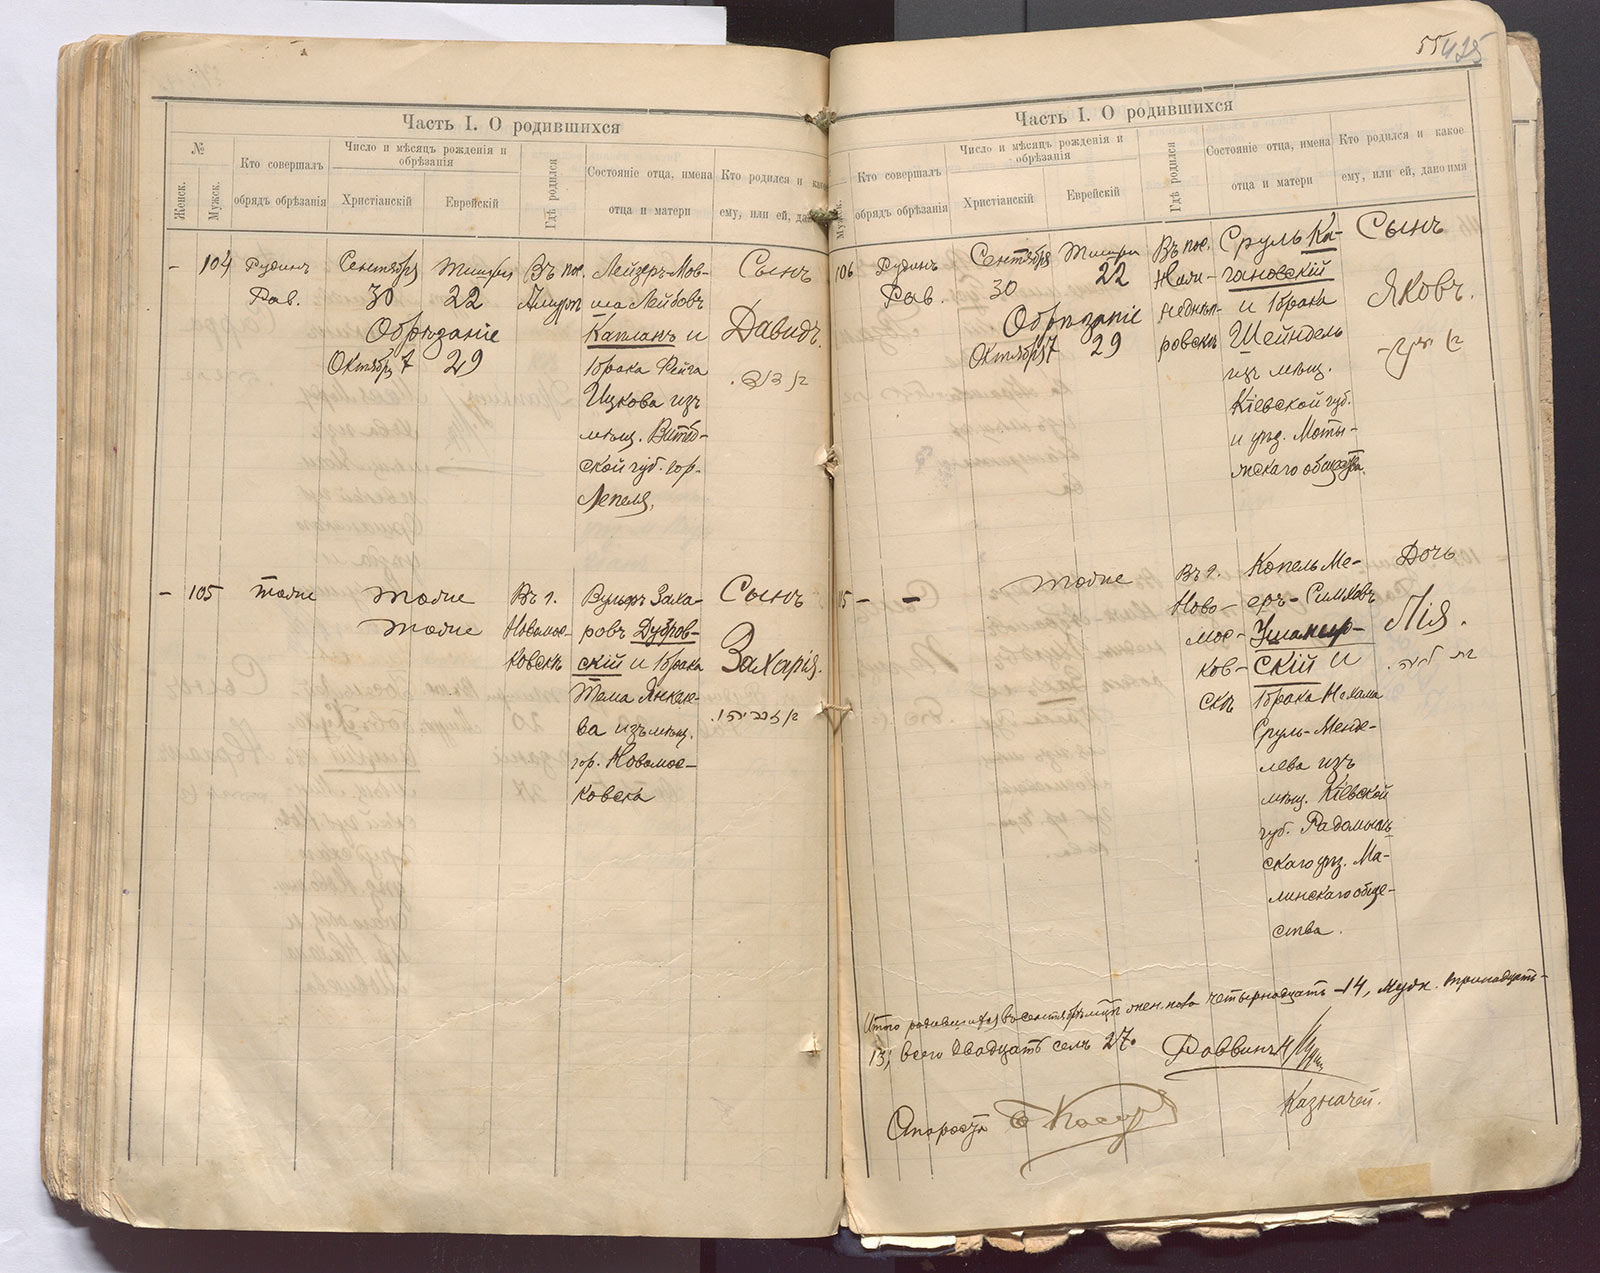 55 425
Часть I. О родившихся
№
Женск.
Мужск.
Кто совершалъ
обрядъ обрѣзанія
Число и мѣсяцъ рожденія и
обрѣзанія
Христіанскій
Еврейскій
Гдѣ родился
Состояніе отца, имена
отца и матери
Кто родился и како
ему, или ей, дано
– 104
Рудинъ
Рав.
Сентября
30
Тишри
22
Обрѣзаніе
Октября 7
29
Въ пос.
Амуръ
Лейзеръ-Мов-
ша Лейбовъ
Капланъ и
брака Фейга
Ицкова изъ
мѣщ. Витеб-
ской губ. гор.
Лепеля,
Сынъ
Давидъ.
בן דוד.
– 105
тоже
тоже
тоже
Въ г.
Новомос-
ковскѣ
Вульфъ Заха-
ровъ Дубров-
скій и брака
Тема Янкеле-
ва изъ мѣщ.
гор. Новомос-
ковска
Сынъ
Захарія.
בן זכריה.
Часть I. О родившихся
Мужск.
Кто совершалъ
обрядъ обрѣзанія
Число и мѣсяцъ рожденія и
обрѣзанія
Христіанскій
Еврейскій
Гдѣ родился
Состояніе отца, имена
отца и матери
Кто родился и какое
ему, или ей, дано имя
106
Рудинъ
Рав.
Сентября
30
Тишри
22
Обрѣзаніе
Октября 7
29
Въ пос.
Нижне-
днѣп-
ровскѣ
Сруль Ка-
гановскій
и брака
Шейндель
изъ мѣщ.
Кіевской губ.
и уѣзд. Моты-
жскаго общества.
Сынъ
Яковъ.
בן יעקב.
15 –
–
тоже
Въ г.
Ново-
мос-
ков-
скѣ
Копель Ме-
еръ-Симховъ
Уманер-
скій и
брака Нехама
Сруль-Менде-
лева изъ
мѣщ. Кіевской
губ. Радомысль-
скаго уѣз. Ма-
линскаго обще-
ства.
Дочь
Лія.
בת ליה.
Итого родившихся въ сентябрѣ м-цѣ жен. пола четырнадцать – 14, муж. тринадцать –
13, всего двадцать семь 27.
Раввинъ
Казначей.